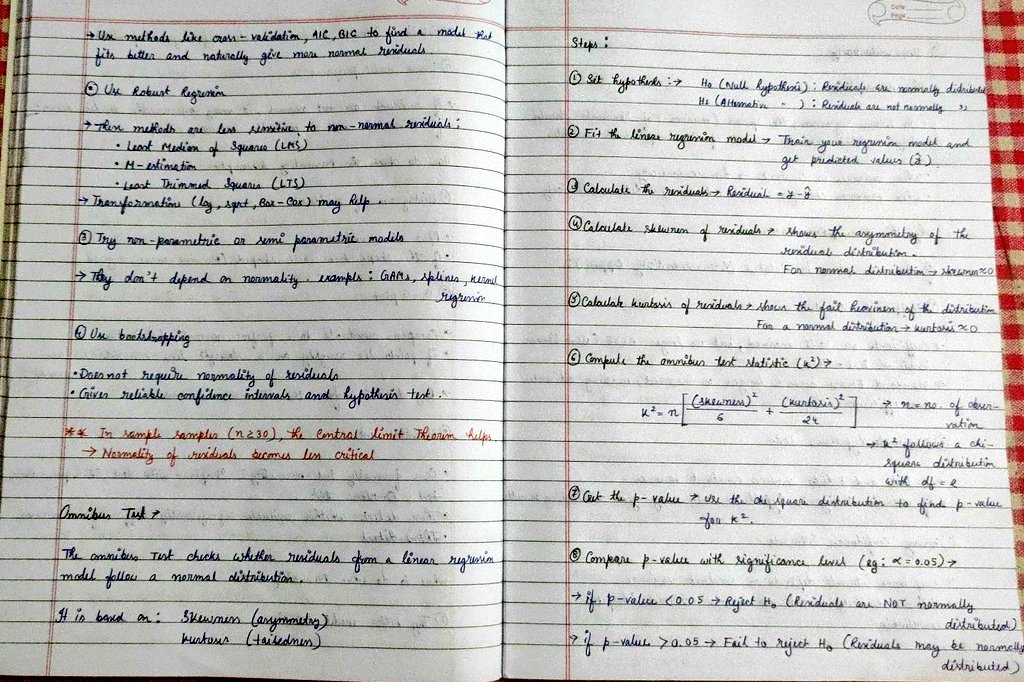 → Use methods like cross-validation, AIC, BIC to find a model that
fits better and naturally give more normal residuals
Use Robust Regression
→ These methods are less sensitive to non-normal residuals:
• Least Median of Squares (LMS)
• M-estimation
• Least Trimmed Squares (LTS)
→ Transformations (log, sqrt, Box-Cox) may help.
③ Try non-parametric or semi parametric models
→ They don't depend on normality. example: GAMs, splines, kernel
regression
④ Use bootstrapping
• Does not require normality of residuals
• Gives reliable confidence intervals and hypothesis test.
** In sample samples (n ≥ 30), the Central limit Theorem helps
→ Normality of residuals becomes less critical
Omnibus Test →
The omnibus Test checks whether residuals from a linear regression
model follow a normal distribution.
It is based on: Skewness (asymmetry)
Kurtosis (tailedness)
Date
Page
Steps:
① Set hypothesis :→ H₀ (Null hypothesis): Residuals are normally distributed
H₁ (Alternative " ): Residuals are not normally "
② Fit the linear regression model → Train your regression model and
get predicted values (ŷ).
③ Calculate the residuals → Residual = y - ŷ
④ Calculate skewness of residuals → shows the asymmetry of the
residual distribution.
For normal distribution → skewness ≈ 0
⑤ Calculate kurtosis of residuals → shows the tail heaviness of the distribution
For a normal distribution → kurtosis ≈ 0
⑥ Compute the omnibus test statistic (K²) →
K² = n [ (skewness)²/6 + (kurtosis)²/24 ] → n = no. of obser-
vation
→ K² follows a chi-
square distribution
with df = 2
⑦ Get the p-value → Use the chi square distribution to find p-value
for K².
⑧ Compare p-value with significance level (eg: α = 0.05) →
→ if p-value < 0.05 → Reject H₀ (Residuals are NOT normally
distributed)
→ if p-value > 0.05 → Fail to reject H₀ (Residuals may be normally
distributed)